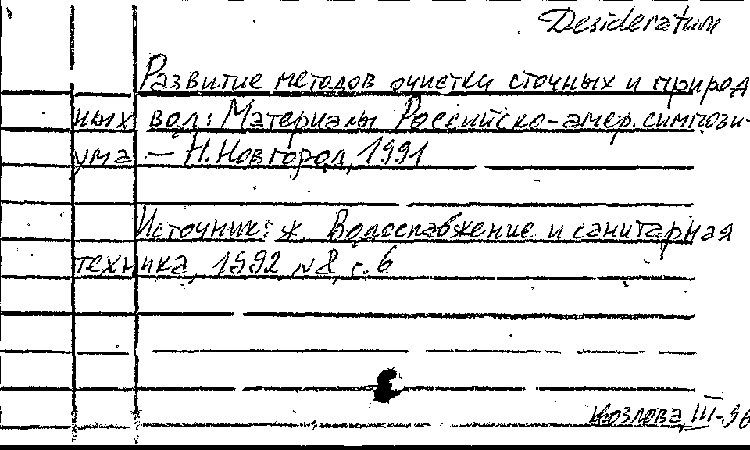 Desideratum
Развитие методов очистки сточных и природ
ных вод: Материалы Российско-амер. симпози-
ума — Н.Новгород, 1991
Источник: ж. Водоснабжение и санитарная
техника, 1992 №8, с. 6
Козлова, III-96